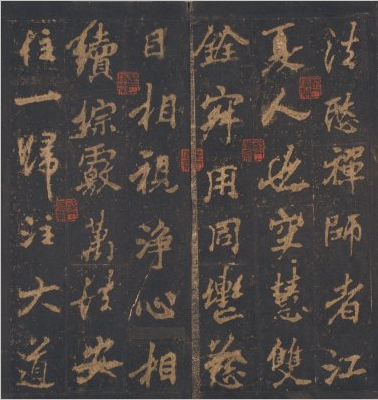 法愍禪師者江
夏人也定慧雙
銓寂用同轡慈
目相視淨心相
續綜覈萬法安
住一歸注大道